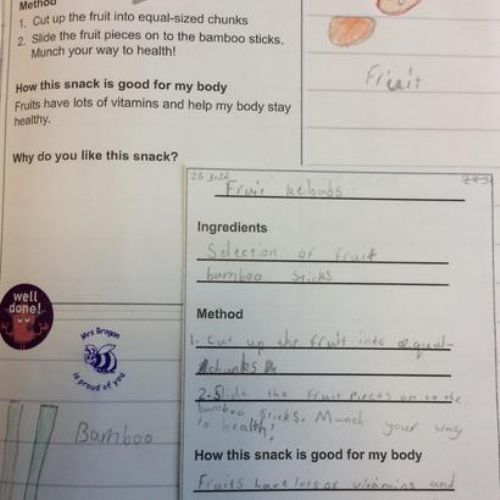 Method
1. Cut up the fruit into equal-sized chunks
2. Slide the fruit pieces on to the bamboo sticks.
Munch your way to health!
How this snack is good for my body
Fruits have lots of vitamins and help my body stay
healthy.
Why do you like this snack?
Fruit
Fruit kebabs
Ingredients
Selection of fruit
bamboo sticks
Method
1. Cut up the fruit into equal-
chunks
2. Slide the fruit pieces on to the
bamboo sticks. Munch your way
to health!
How this snack is good for my body
Fruits have lots of vitamins and
well
done!
Mrs Brogan
is proud of you
Bamboo